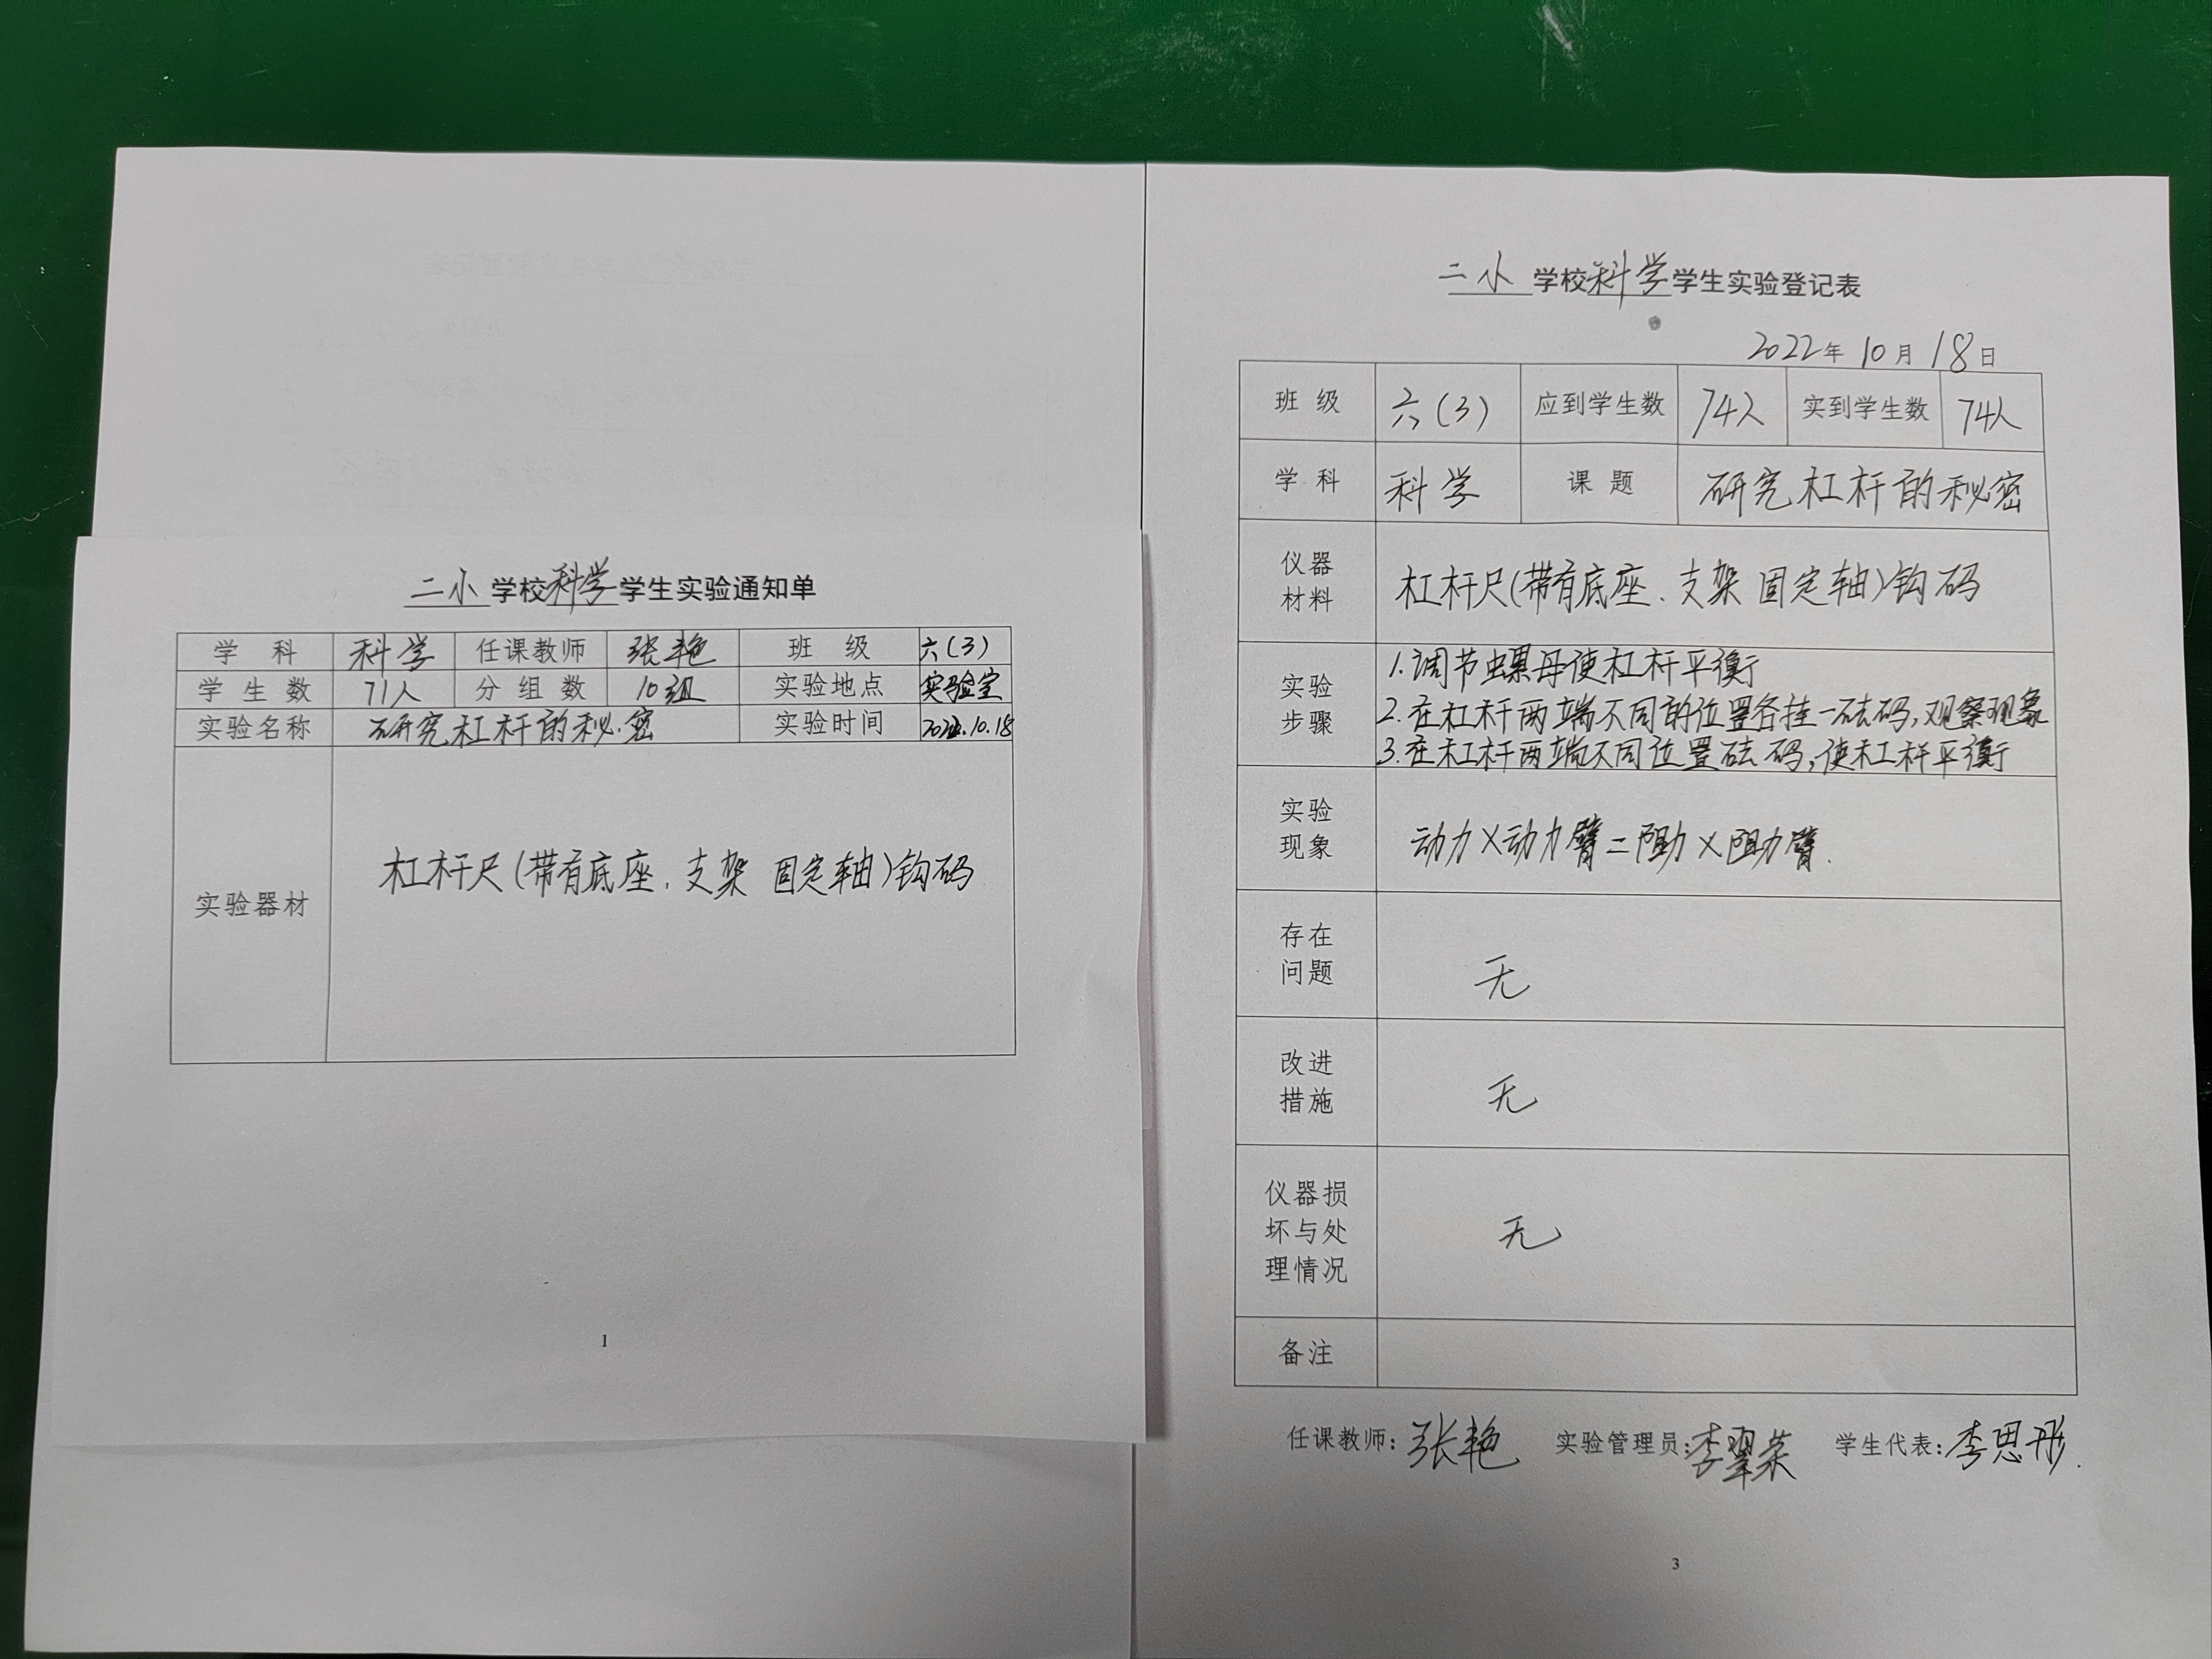 二小学校科学学生实验通知单
学科 科学 任课教师 张艳 班级 六(3)
学生数 71人 分组数 10组 实验地点 实验室
实验名称 研究杠杆的秘密 实验时间 2022.10.18
实验器材 杠杆尺(带有底座、支架 固定轴)钩码
1
二小学校科学学生实验登记表
2022年10月18日
班级 六(3) 应到学生数 74人 实到学生数 74人
学科 科学 课题 研究杠杆的秘密
仪器
材料
杠杆尺(带有底座、支架 固定轴)钩码
实验
步骤
1.调节螺母使杠杆平衡
2.在杠杆两端不同的位置各挂一砝码,观察现象
3.在杠杆两端不同位置砝码,使杠杆平衡
实验
现象
动力×动力臂=阻力×阻力臂.
存在
问题
无
改进
措施
无
仪器损
坏与处
理情况
无
备注
任课教师:张艳 实验管理员:李翠荣 学生代表:李思彤.
3